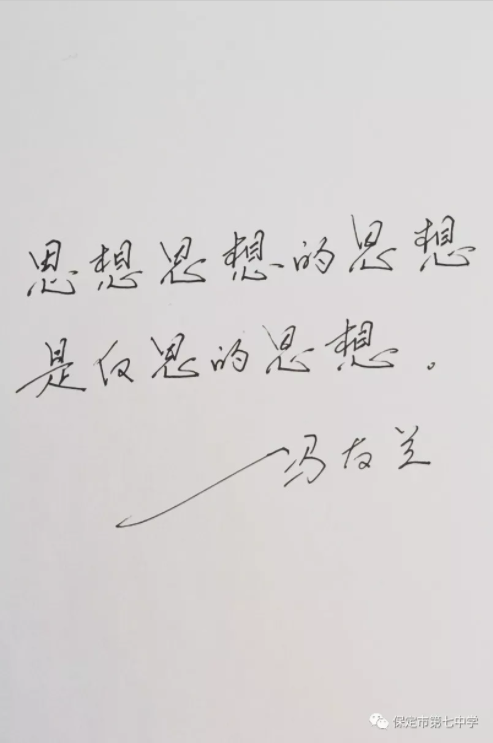 思想思想的思想
是反思的思想。
——冯友兰
保定市第七中学